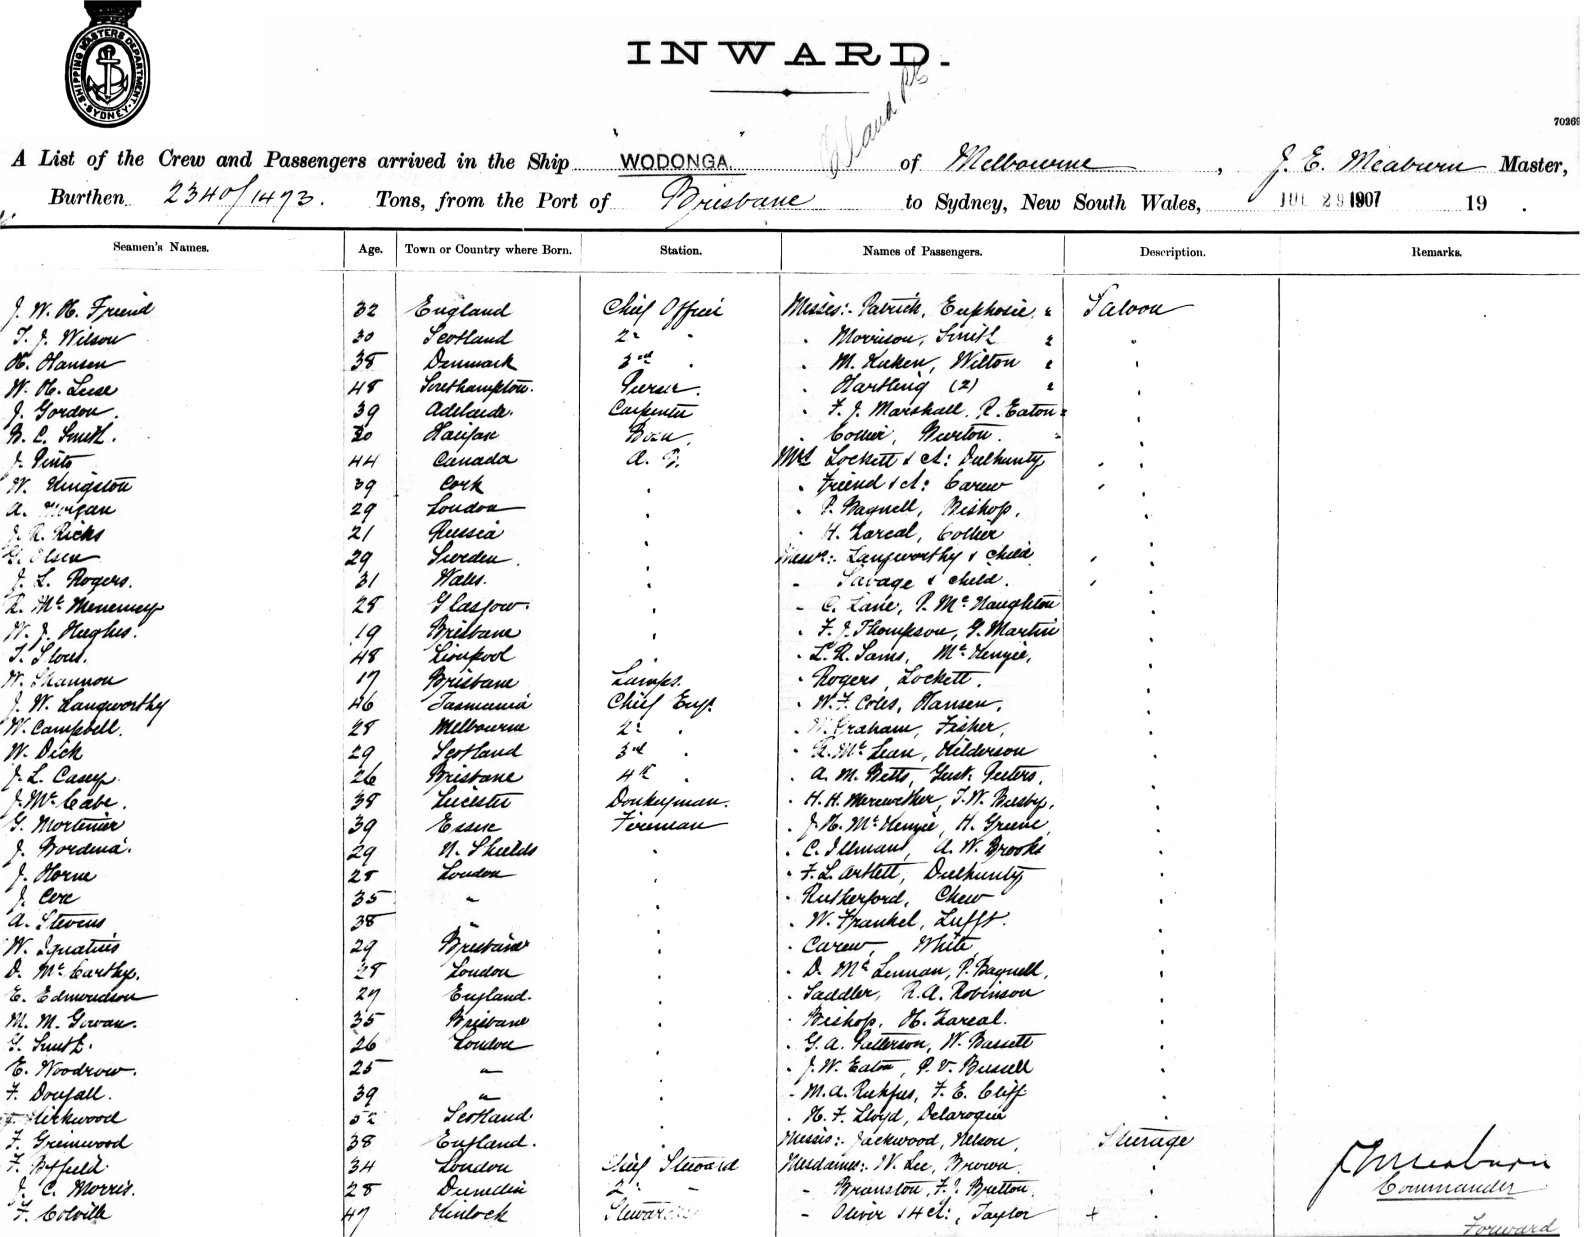 SHIPPING MASTERS DEPARTMENT
SYDNEY
INWARD.
70269
A List of the Crew and Passengers arrived in the Ship "WODONGA" of Melbourne, J. E. Meaburn Master,
Burthen 2340/1473. Tons, from the Port of Brisbane to Sydney, New South Wales, JUL 29 1907 19 .
Seamen's Names. Age. Town or Country where Born. Station. Names of Passengers. Description. Remarks.
J. W. H. Friend 32 England Chief Officer Misses:- Patrick, Euphosie " Saloon
T. J. Wilson 30 Scotland 2" " " Morrison, Smith " "
H. Hansen 38 Denmark 3rd " " M. Kuken, Wilton " "
W. H. Luse 48 Southampton. Purser. " Hartling (2) " "
J. Gordon. 39 Adelaide. Carpenter " F. J. Marshall, R. Eaton " "
B. C. Smith. 30 Halifax Bosn. " Collier, Burton. " "
J. Pinto 44 Canada A. B. Mrs Lockett & ch: Dulhunty " "
W. Kingston 39 Cork " " Friend & ch: Carew " "
A. Morgan 29 London " " P. Bagnell, Bishop, "
J. R. Ricks 21 Russia " " H. Zareal, Collier "
Olsen 29 Sweden. " Messrs:- Langworthy & child " "
J. L. Rogers. 31 Wales. " " Savage & child. " "
R. McMenemey 28 Glasgow. " " C. Lane, P. McNaughton "
W. J. Hughes. 19 Brisbane " " F. J. Thompson, G. Martin "
T. 48 Liverpool " " L. R. Sams, McKenzie, "
W. Shannon 17 Brisbane Lamps. " Rogers, Lockett. "
J. W. Langworthy 46 Tasmania Chief Engr " W. F. Coles, Hansen. "
W. Campbell. 28 Melbourne 2" " " W. Graham, Fisher, "
W. Dick 29 Scotland 3rd " " McLean, Hilderson "
J. L. Casey. 26 Brisbane 4th " " A. M. Betts, Gust. Peeters, "
J. McCabe. 38 Leicester Donkeyman. " H. H. Merewether, T. W. Busby, "
G. Mortimer 39 Essex Fireman " J. H. McKenzie, H. Greene, "
J. Bordina. 29 N. Shields " " C. Illman, A. W. Brooks "
J. Horne 28 London " " F. L. Artlett, Dulhunty "
J. Cox 35 " " " Rutherford, Chew "
A. Stevens 38 " " " W. Frankel, Lufft. "
W. Ignatius 29 Brisbane " " Carew, White "
D. McCarthy. 28 London " " D. McLennan, P. Bagnell, "
E. Edmondson 27 England. " " Saddler, R. A. Robinson "
M. M. Gowan. 35 Brisbane " " Bishop, H. Zareal. "
G. Smith. 26 London " " G. A. Patterson, W. Bassett "
E. Woodrow. 25 " " " J. W. Eaton, P. V. Bussell "
F. Dougall. 39 " " " M. A. Rukfus, F. E. Cliff "
Kirkwood 52 Scotland. " " H. F. Lloyd, Delaroque "
F. Greenwood 38 England. " Misses:- Jackwood, Nelson, Steerage
F. Byffield. 34 London Chief Steward Mesdames:- W. Lee, Brown "
J. C. Morris. 28 Dunedin 2" " " Branston, F. J. Bretton "
F. Colville 47 Stewardess " Oliver & 4 ch:, Taylor + "
J. E. Meaburn
Commander
Forward